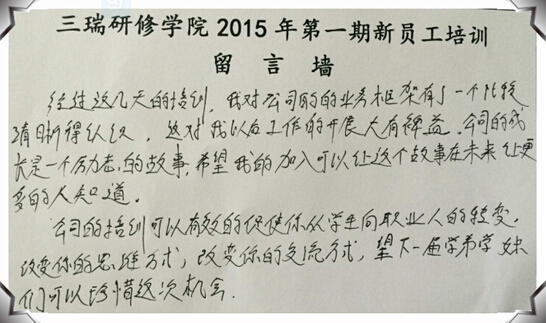 三瑞研修学院 2015 年第一期新员工培训
留言墙
经过这几天的培训，我对公司的的业务框架有了一个比较
清晰得认识，这对我以后工作的开展大有裨益。公司的成
长是一个励志的故事，希望我的加入可以让这个故事在未来让更
多的人知道。
公司的培训可以有效的促使你从学生向职业人的转变，
改变你的思维方式，改变你的交流方式，望下一届学弟学妹
们可以珍惜这次机会．